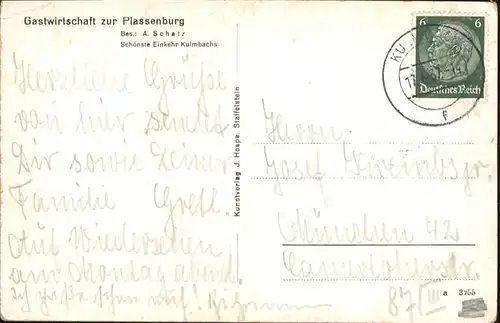 Gastwirtschaft zur Plassenburg
Bes.: A. Schatz
Schönste Einkehr Kulmbachs
Herzliche Grüße
von hier sendet
Dir sowie Deiner
Familie Gretl.
Auf Wiedersehen
am Montag abend.
Kunstverlag J. Hospe, Staffelstein
6 6
Deutsches Reich
Herrn
Josef
München 42
87/III
a 3755